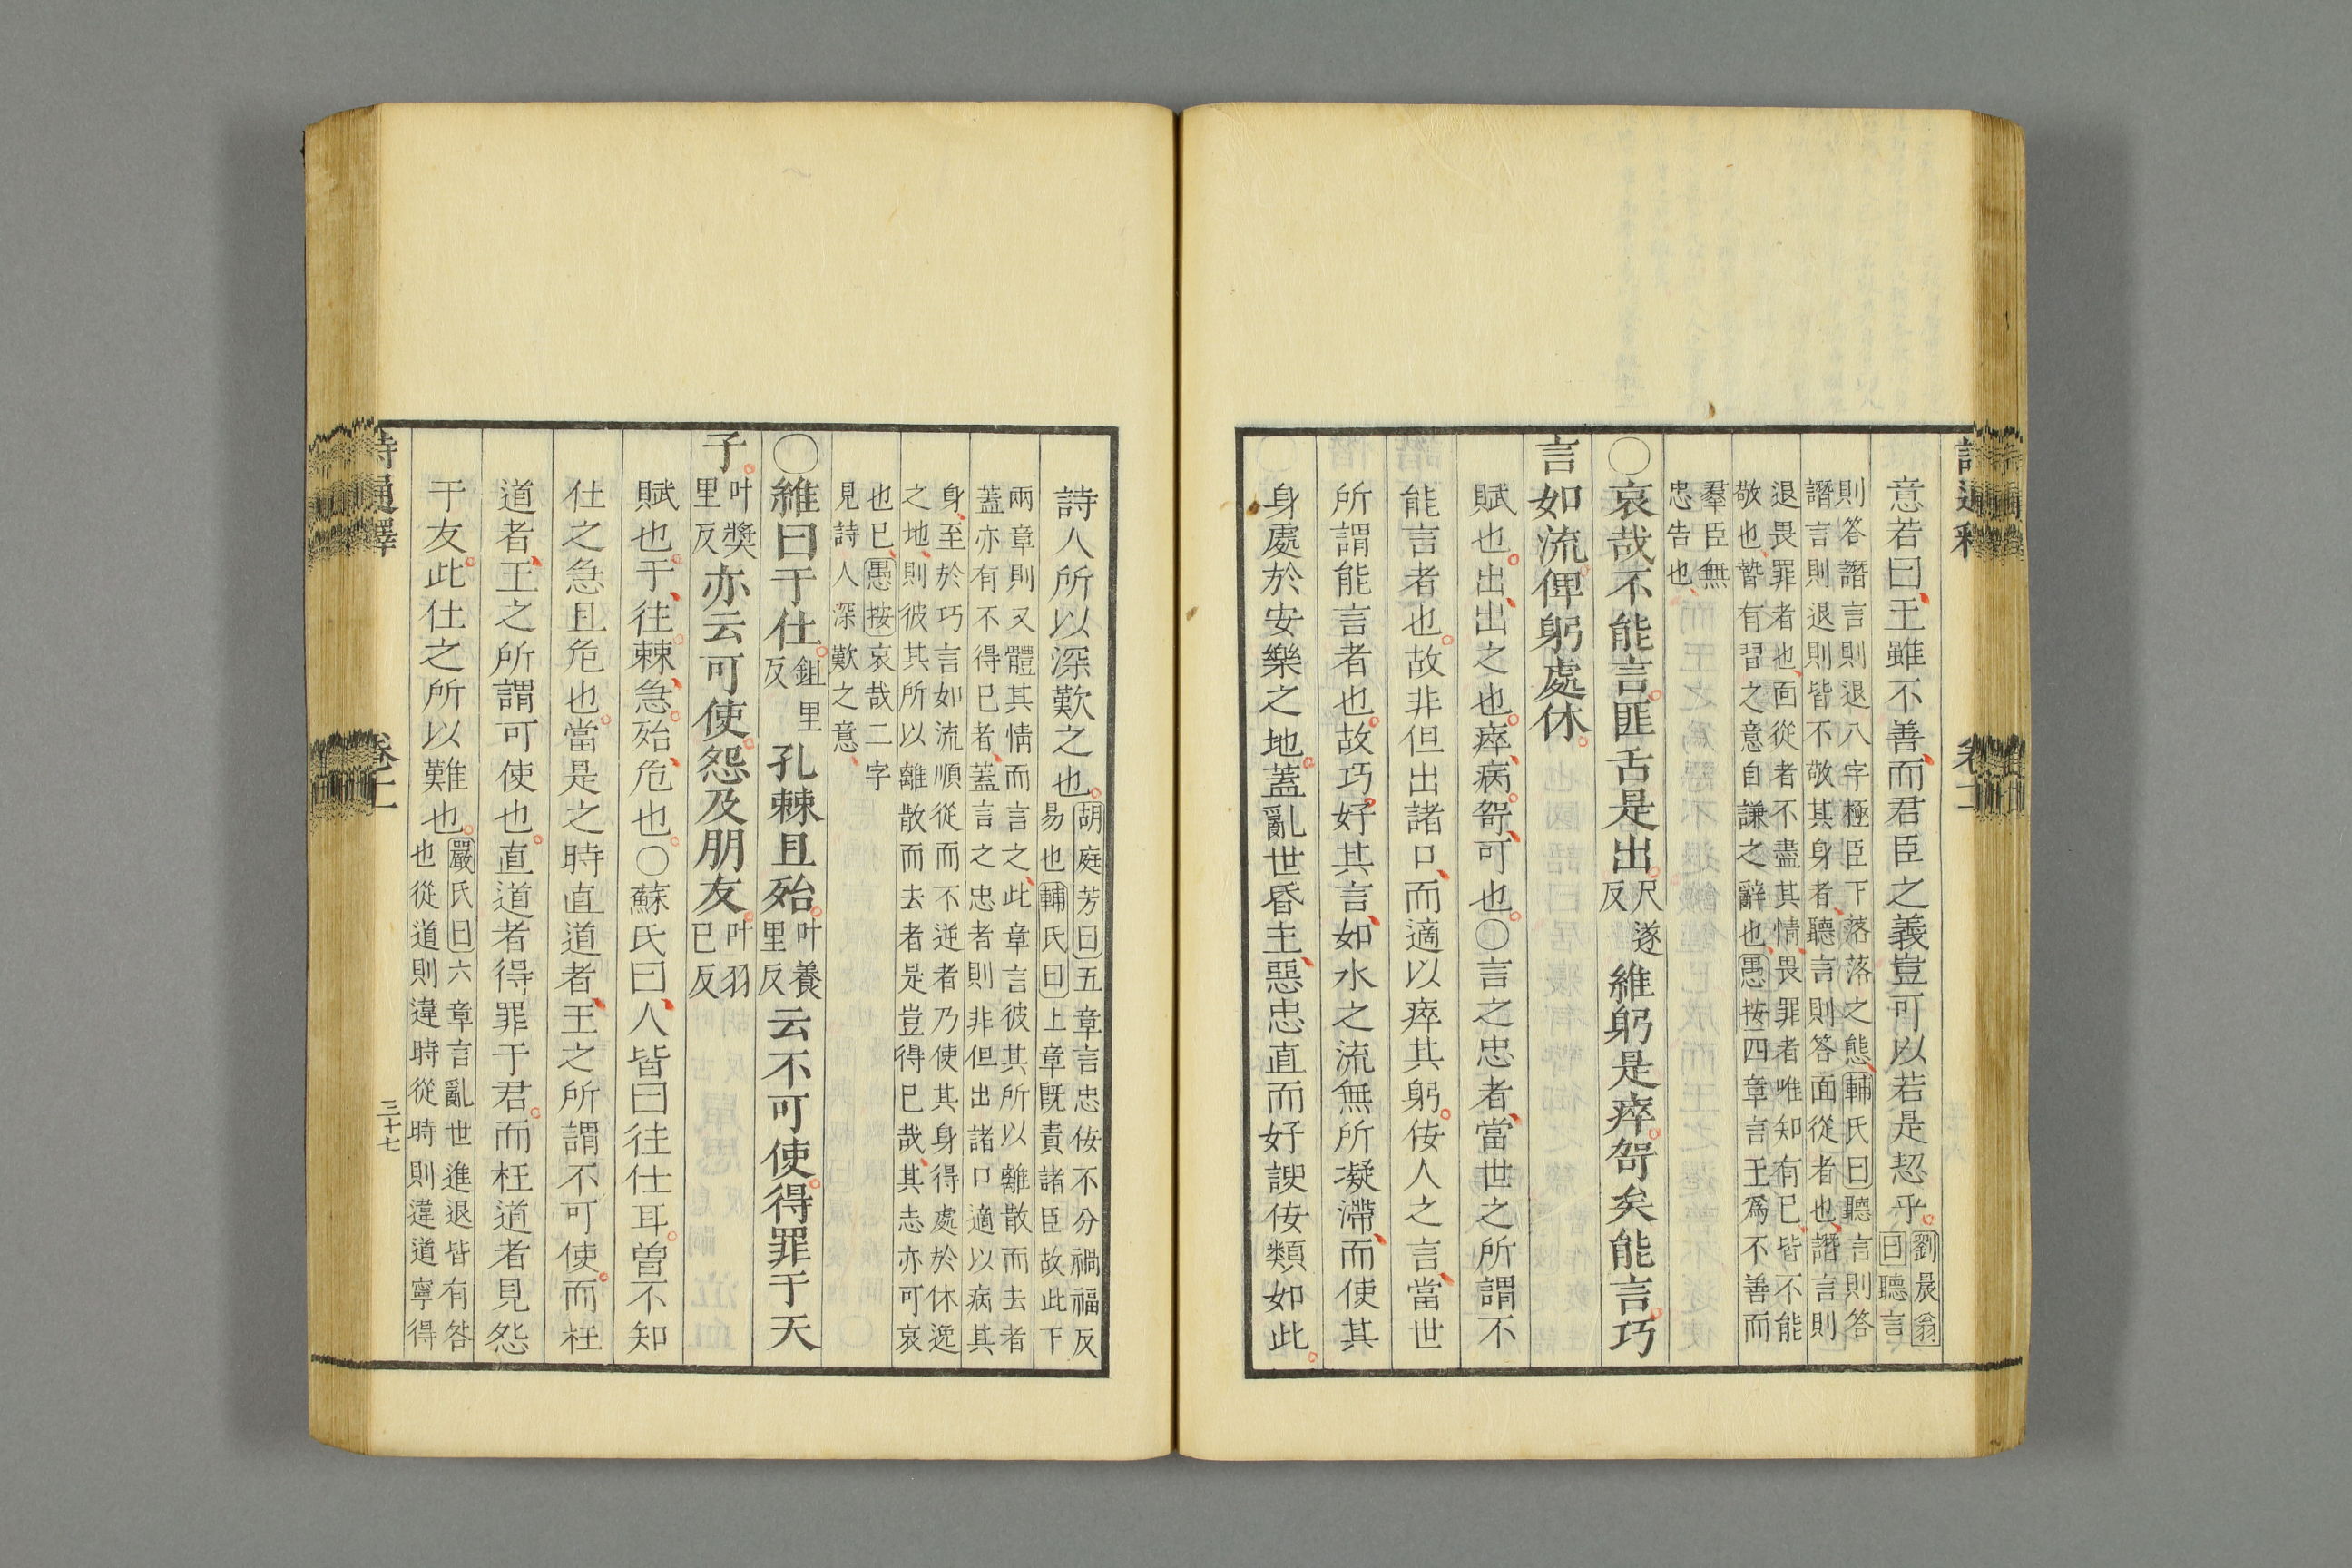 意若曰王雖不善而君臣之義豈可以若是恝乎劉辰翁
曰聽言
則答譖言則退八字極臣下落落之態輔氏曰聽言則答
譖言則退則皆不敬其身者聽言則答面從者也譖言則
退畏罪者也面從者不盡其情畏罪者唯知有已皆不能
敬也暬有習之意自謙之辭也愚按四章言王爲不善而
羣臣無
忠告也
〇哀哉不能言匪舌是出尺遂
反維躬是瘁哿矣能言巧
言如流俾躬處休
賦也出出之也瘁病哿可也〇言之忠者當世之所謂不
能言者也故非但出諸口而適以瘁其躬侫人之言當世
所謂能言者也故巧好其言如水之流無所凝滯而使其
身處於安樂之地蓋亂世昏主惡忠直而好諛侫類如此
詩人所以深歎之也胡庭芳曰五章言忠侫不分禍福反
易也輔氏曰上章旣責諸臣故此下
兩章則又體其情而言之此章言彼其所以離散而去者
蓋亦有不得已者蓋言之忠者則非但出諸口適以病其
身至於巧言如流順從而不逆者乃使其身得處於休逸
之地則彼其所以離散而去者是豈得已哉其志亦可哀
也已愚按哀哉二字
見詩人深歎之意
〇維曰于仕鉏里
反孔棘且殆叶養
里反云不可使得罪于天
子叶獎
里反亦云可使怨及朋友叶羽
已反
賦也于往棘急殆危也〇蘇氏曰人皆曰往仕耳曽不知
仕之急且危也當是之時直道者王之所謂不可使而枉
道者王之所謂可使也直道者得罪于君而枉道者見怨
于友此仕之所以難也嚴氏曰六章言亂世進退皆有咎
也從道則違時從時則違道寧得
卷十一
三十七